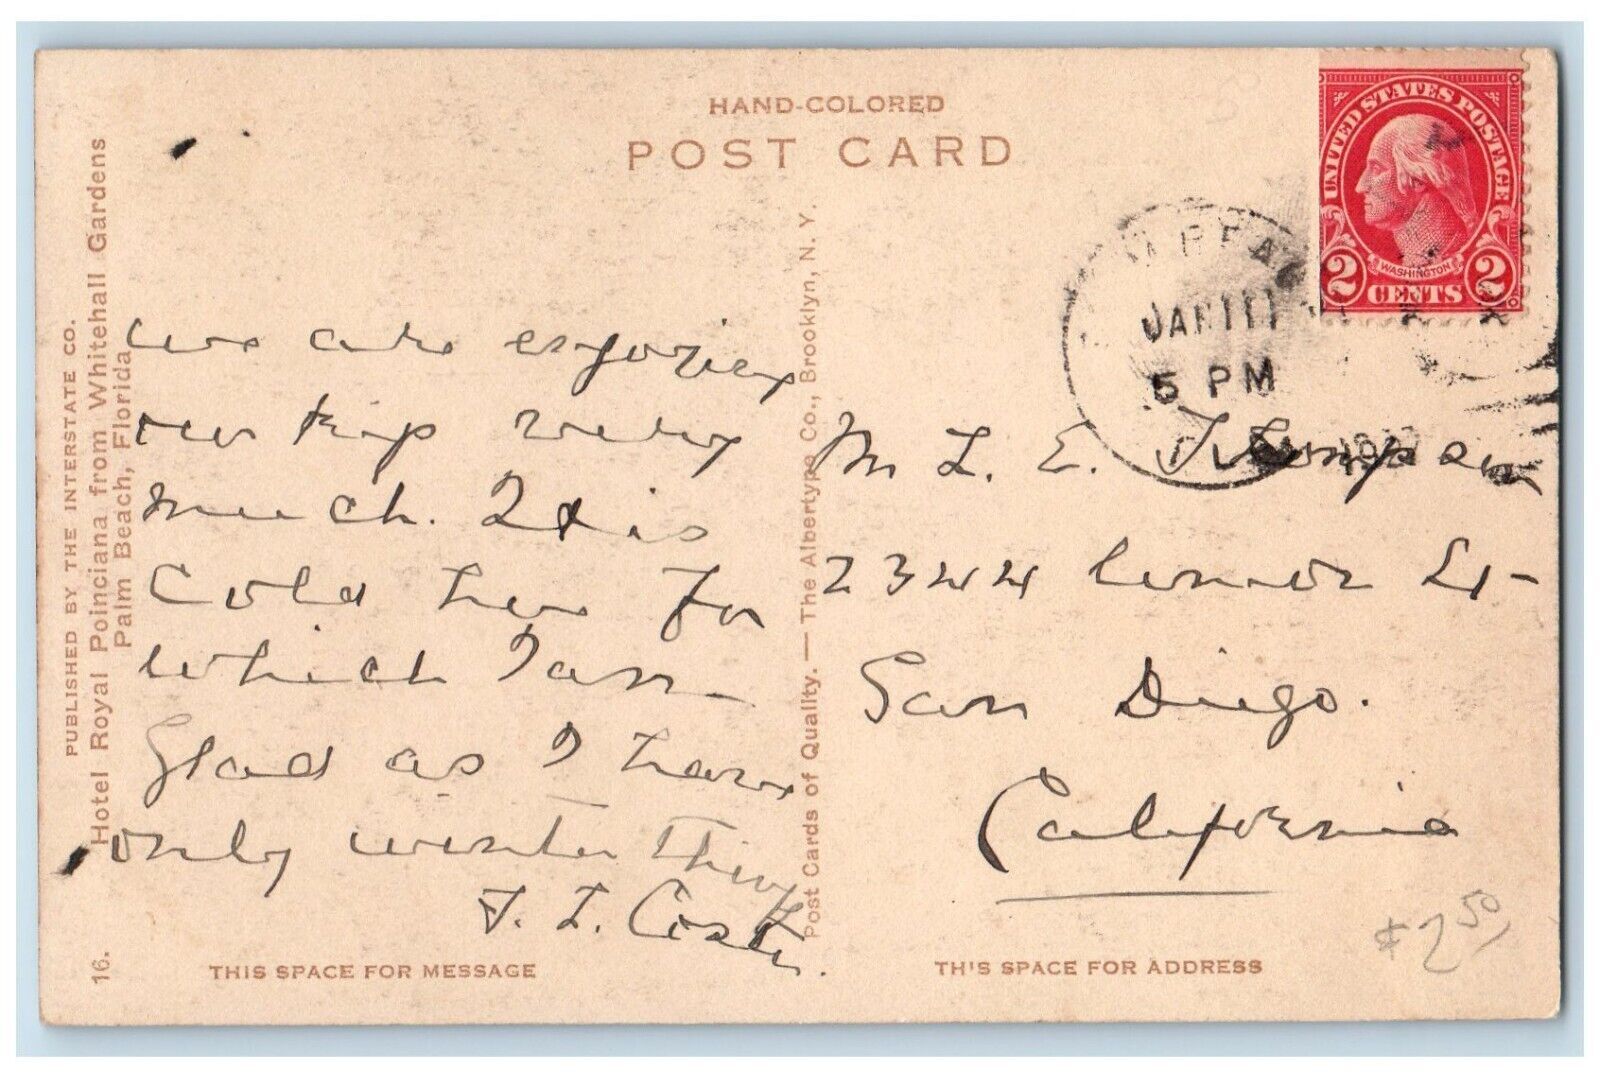 HAND-COLORED
POST CARD
UNITED STATES POSTAGE
WASHINGTON
2 CENTS 2
JAN 11
5 PM
PUBLISHED BY THE INTERSTATE CO.
Hotel Royal Poinciana from Whitehall Gardens
Palm Beach, Florida
16.
we are enjoying
our trip very
much. It is
Cold here for
which I am
Glad as I have
only winter Things
Post Cards of Quality. — The Albertype Co., Brooklyn, N. Y.
L. E.
2344 St-
San Diego.
California
$2.50
THIS SPACE FOR MESSAGE
THIS SPACE FOR ADDRESS